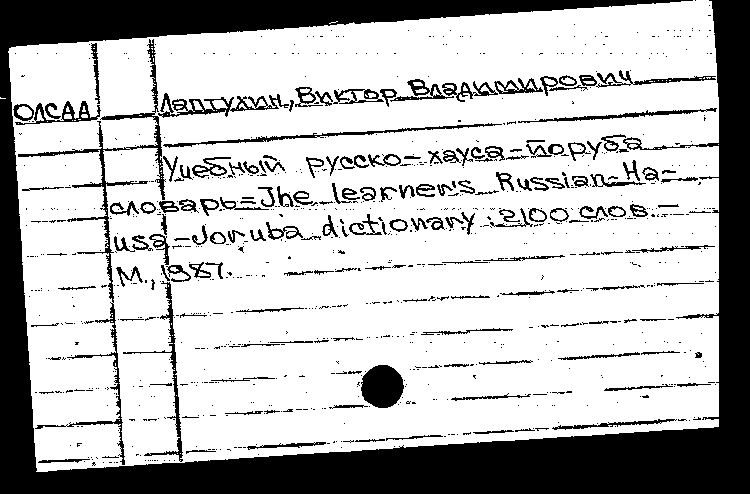 ОЛСАА Лаптухин, Виктор Владимирович
Учебный русско-хауса-йоруба
словарь=The learner's Russian-Ha-
usa-Joruba dictionary: 2100 слов.—
М., 1987.